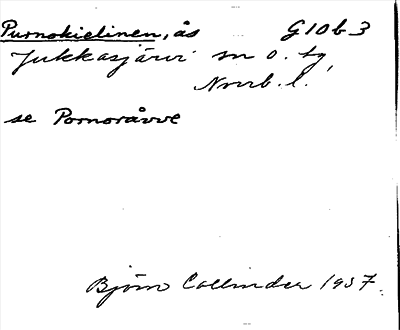 Purnokielinen, ås G10b3
Jukkasjärvi sn o. tg,
Norrb. l.
se Pornoråvve
Björn Collinder 1937.